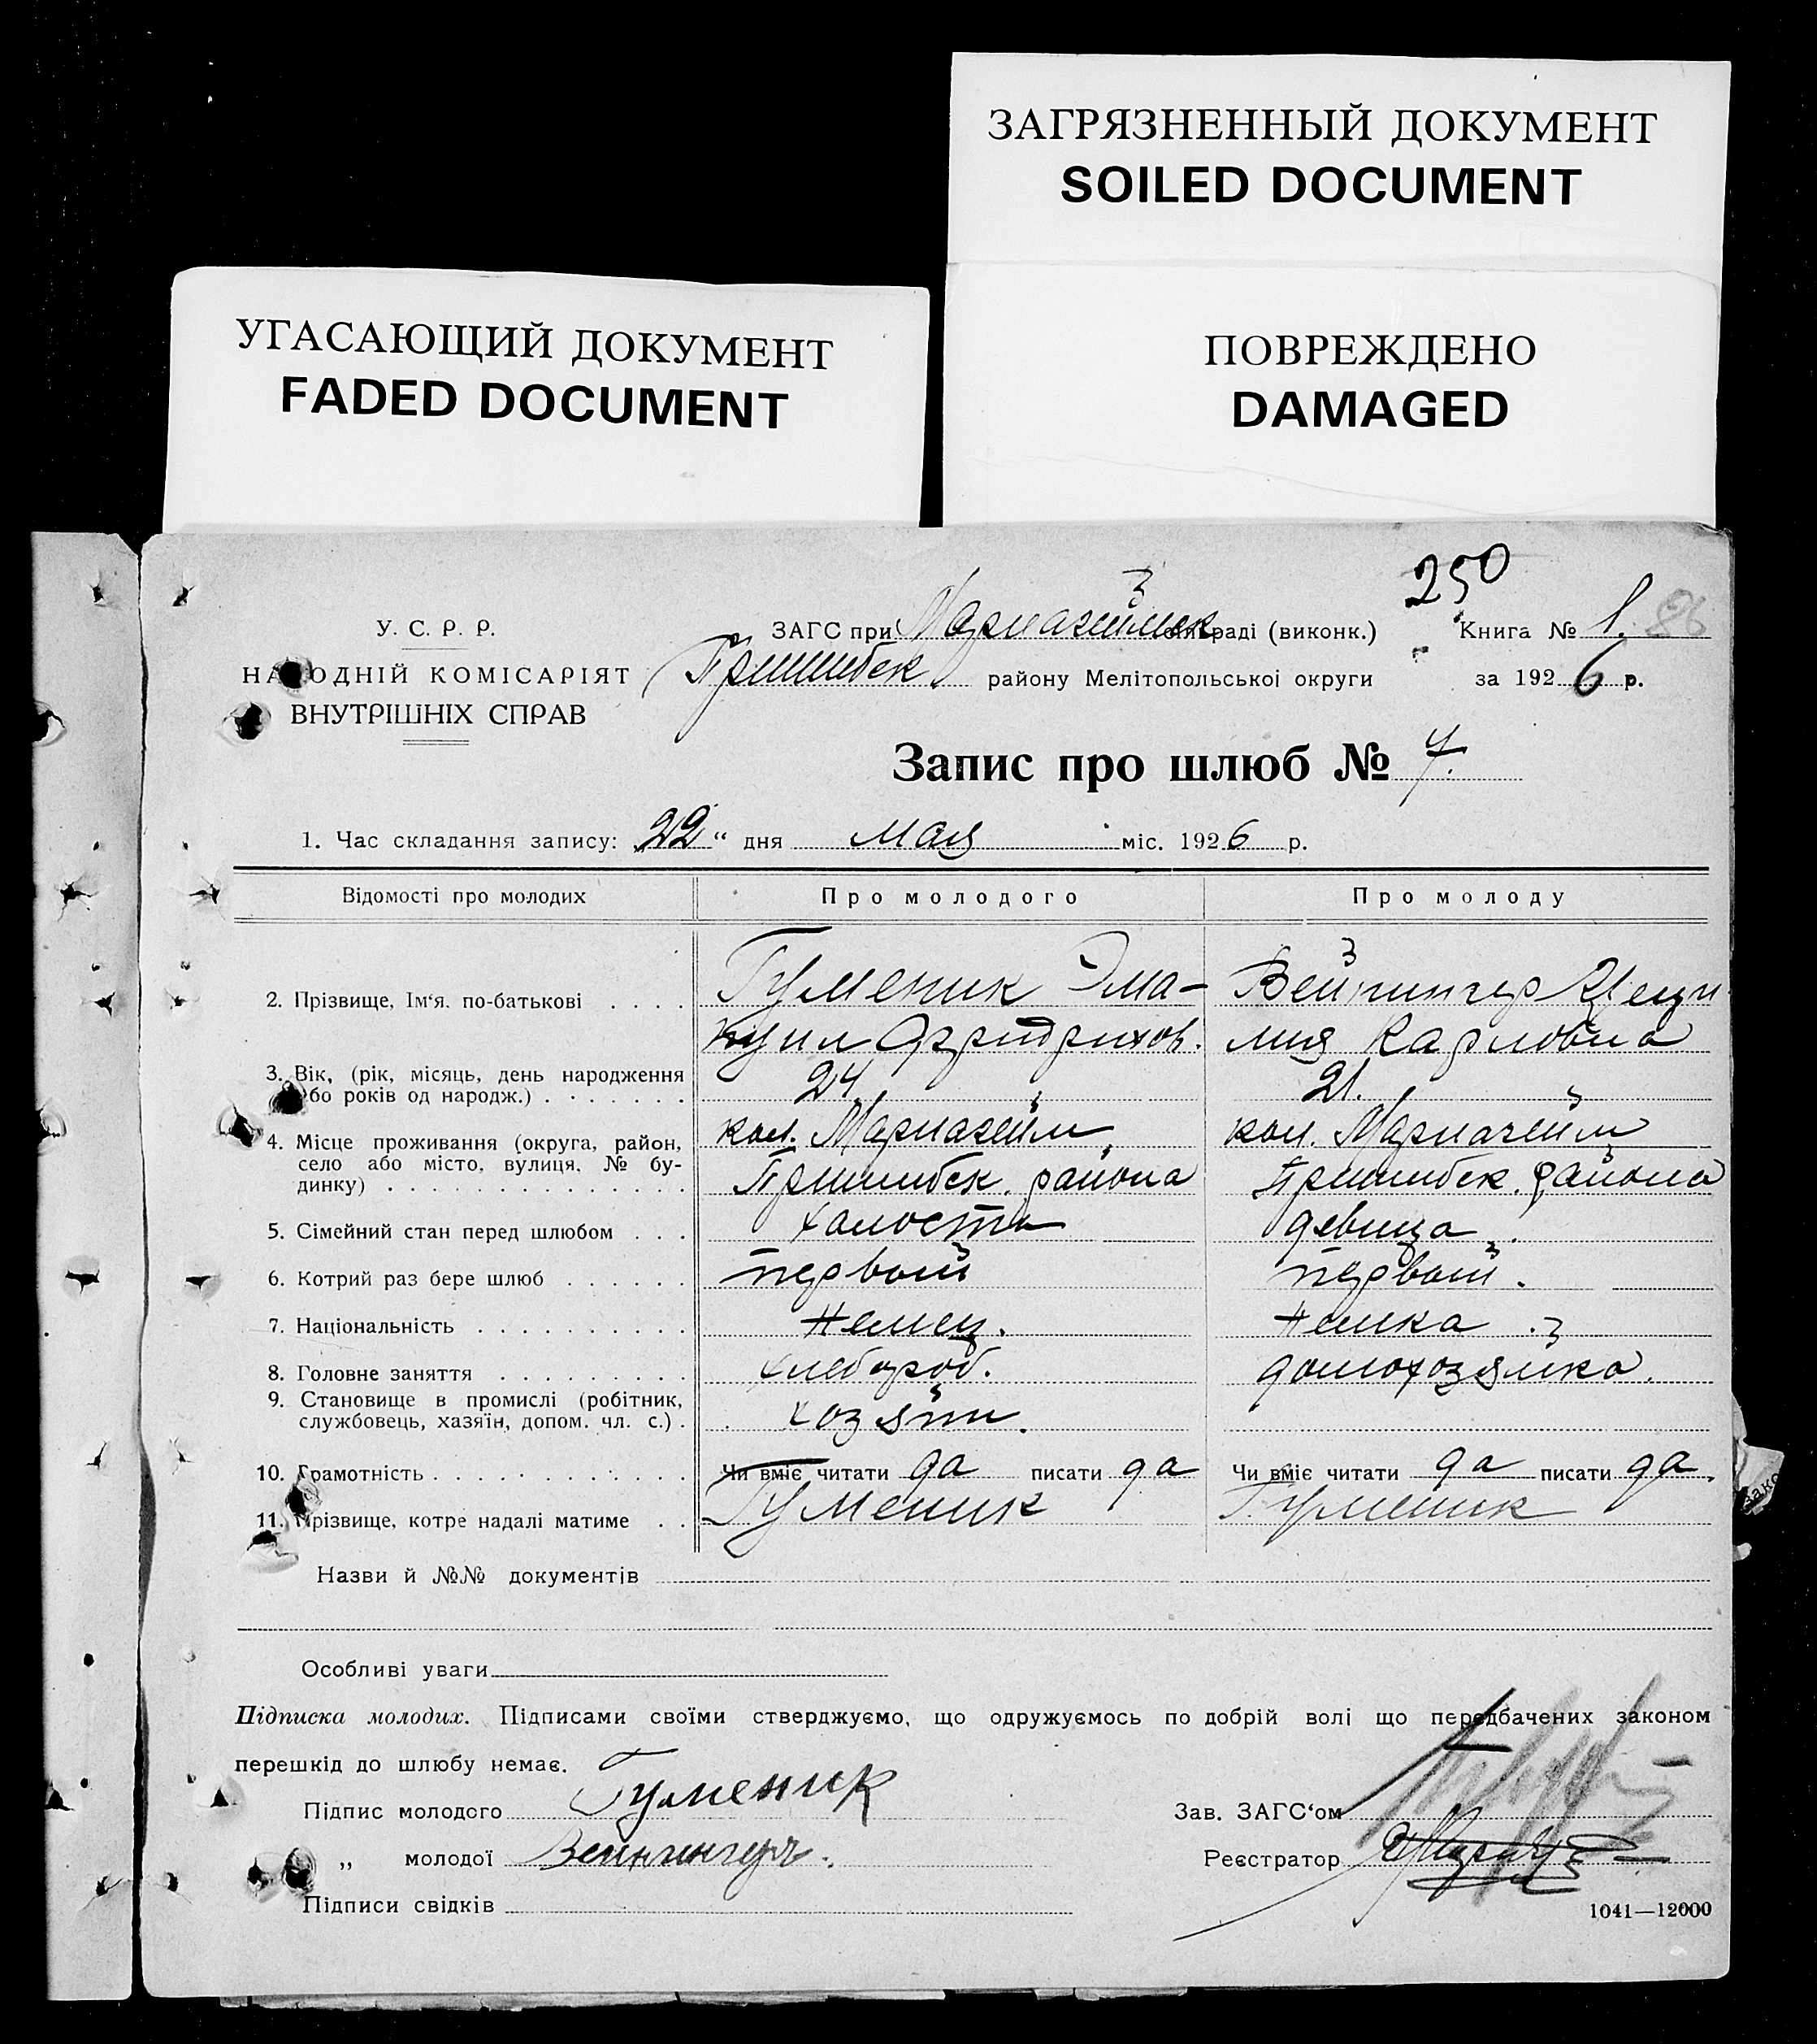 ЗАГРЯЗНЕННЫЙ ДОКУМЕНТ
SOILED DOCUMENT
УГАСАЮЩИЙ ДОКУМЕНТ
FADED DOCUMENT
ПОВРЕЖДЕНО
DAMAGED
250
У. С. Р. Р.
НАРОДНІЙ КОМІСАРІЯТ
ВНУТРІШНІХ СПРАВ
ЗАГС при Мариагеймск раді (виконк.)
Пришибск району Мелітопольської округи
Книга № 1. 26
за 1926 р.
Запис про шлюб № 7.
1. Час складання запису: 22 " дня мая міс. 1926 р.
Відомості про молодих Про молодого Про молоду
2. Прізвище, Ім'я. по-батькові Гуменик Эма- Вейнингер Цеци
нуил Фридрихов. лия Карловна
3. Вік, (рік, місяць, день народження 24 21.
або років од народж.)
4. Місце проживання (округа, район, кол. Мариагейм, кол. Мариагейм
село або місто, вулиця, № бу- Пришибск. района Пришибск. района
динку)
5. Сімейний стан перед шлюбом холост девица
6. Котрий раз бере шлюб первый первый.
7. Національність Немец. Немка
8. Головне заняття хлебороб. домохозяйка.
9. Становище в промислі (робітник,
службовець, хазяїн, допом. чл. с.) хозяин.
10. Грамотність Чи вміє читати да писати да Чи вміє читати да писати да.
11. Прізвище, котре надалі матиме Гуменик Гуменик
Назви й №№ документів
Особливі уваги
Підписка молодих. Підписами своїми стверджуємо, що одружуємось по добрій волі що передбачених законом
перешкід до шлюбу немає.
Підпис молодого Гуменик Зав. ЗАГС'ом
„ молодої Вейнингер. Реєстратор
Підписи свідків
1041—12000